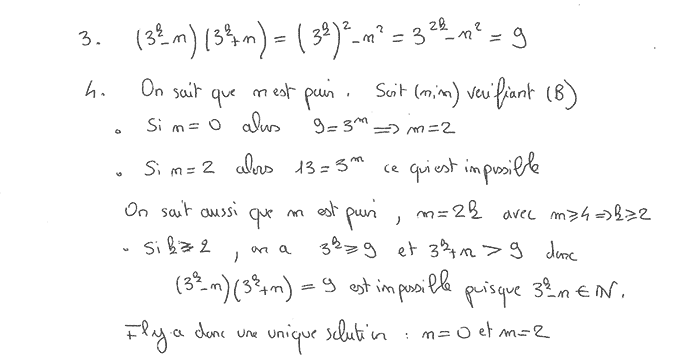 3. (3^k-n)(3^k+n) = (3^k)^2-n^2 = 3^{2k}-n^2 = 9
4. On sait que n est pair. Soit (n;m) vérifiant (B)
• Si n=0 alors 9=3^m ⟹ m=2
• Si n=2 alors 13=3^m ce qui est impossible
On sait aussi que m est pair, m=2k avec m≥4 ⟹ k≥2
• Si k≥2, on a 3^k≥9 et 3^k+n > 9 donc
(3^k-n)(3^k+n) = 9 est impossible puisque 3^k-n ∈ ℕ.
Il y a donc une unique solution : n=0 et m=2